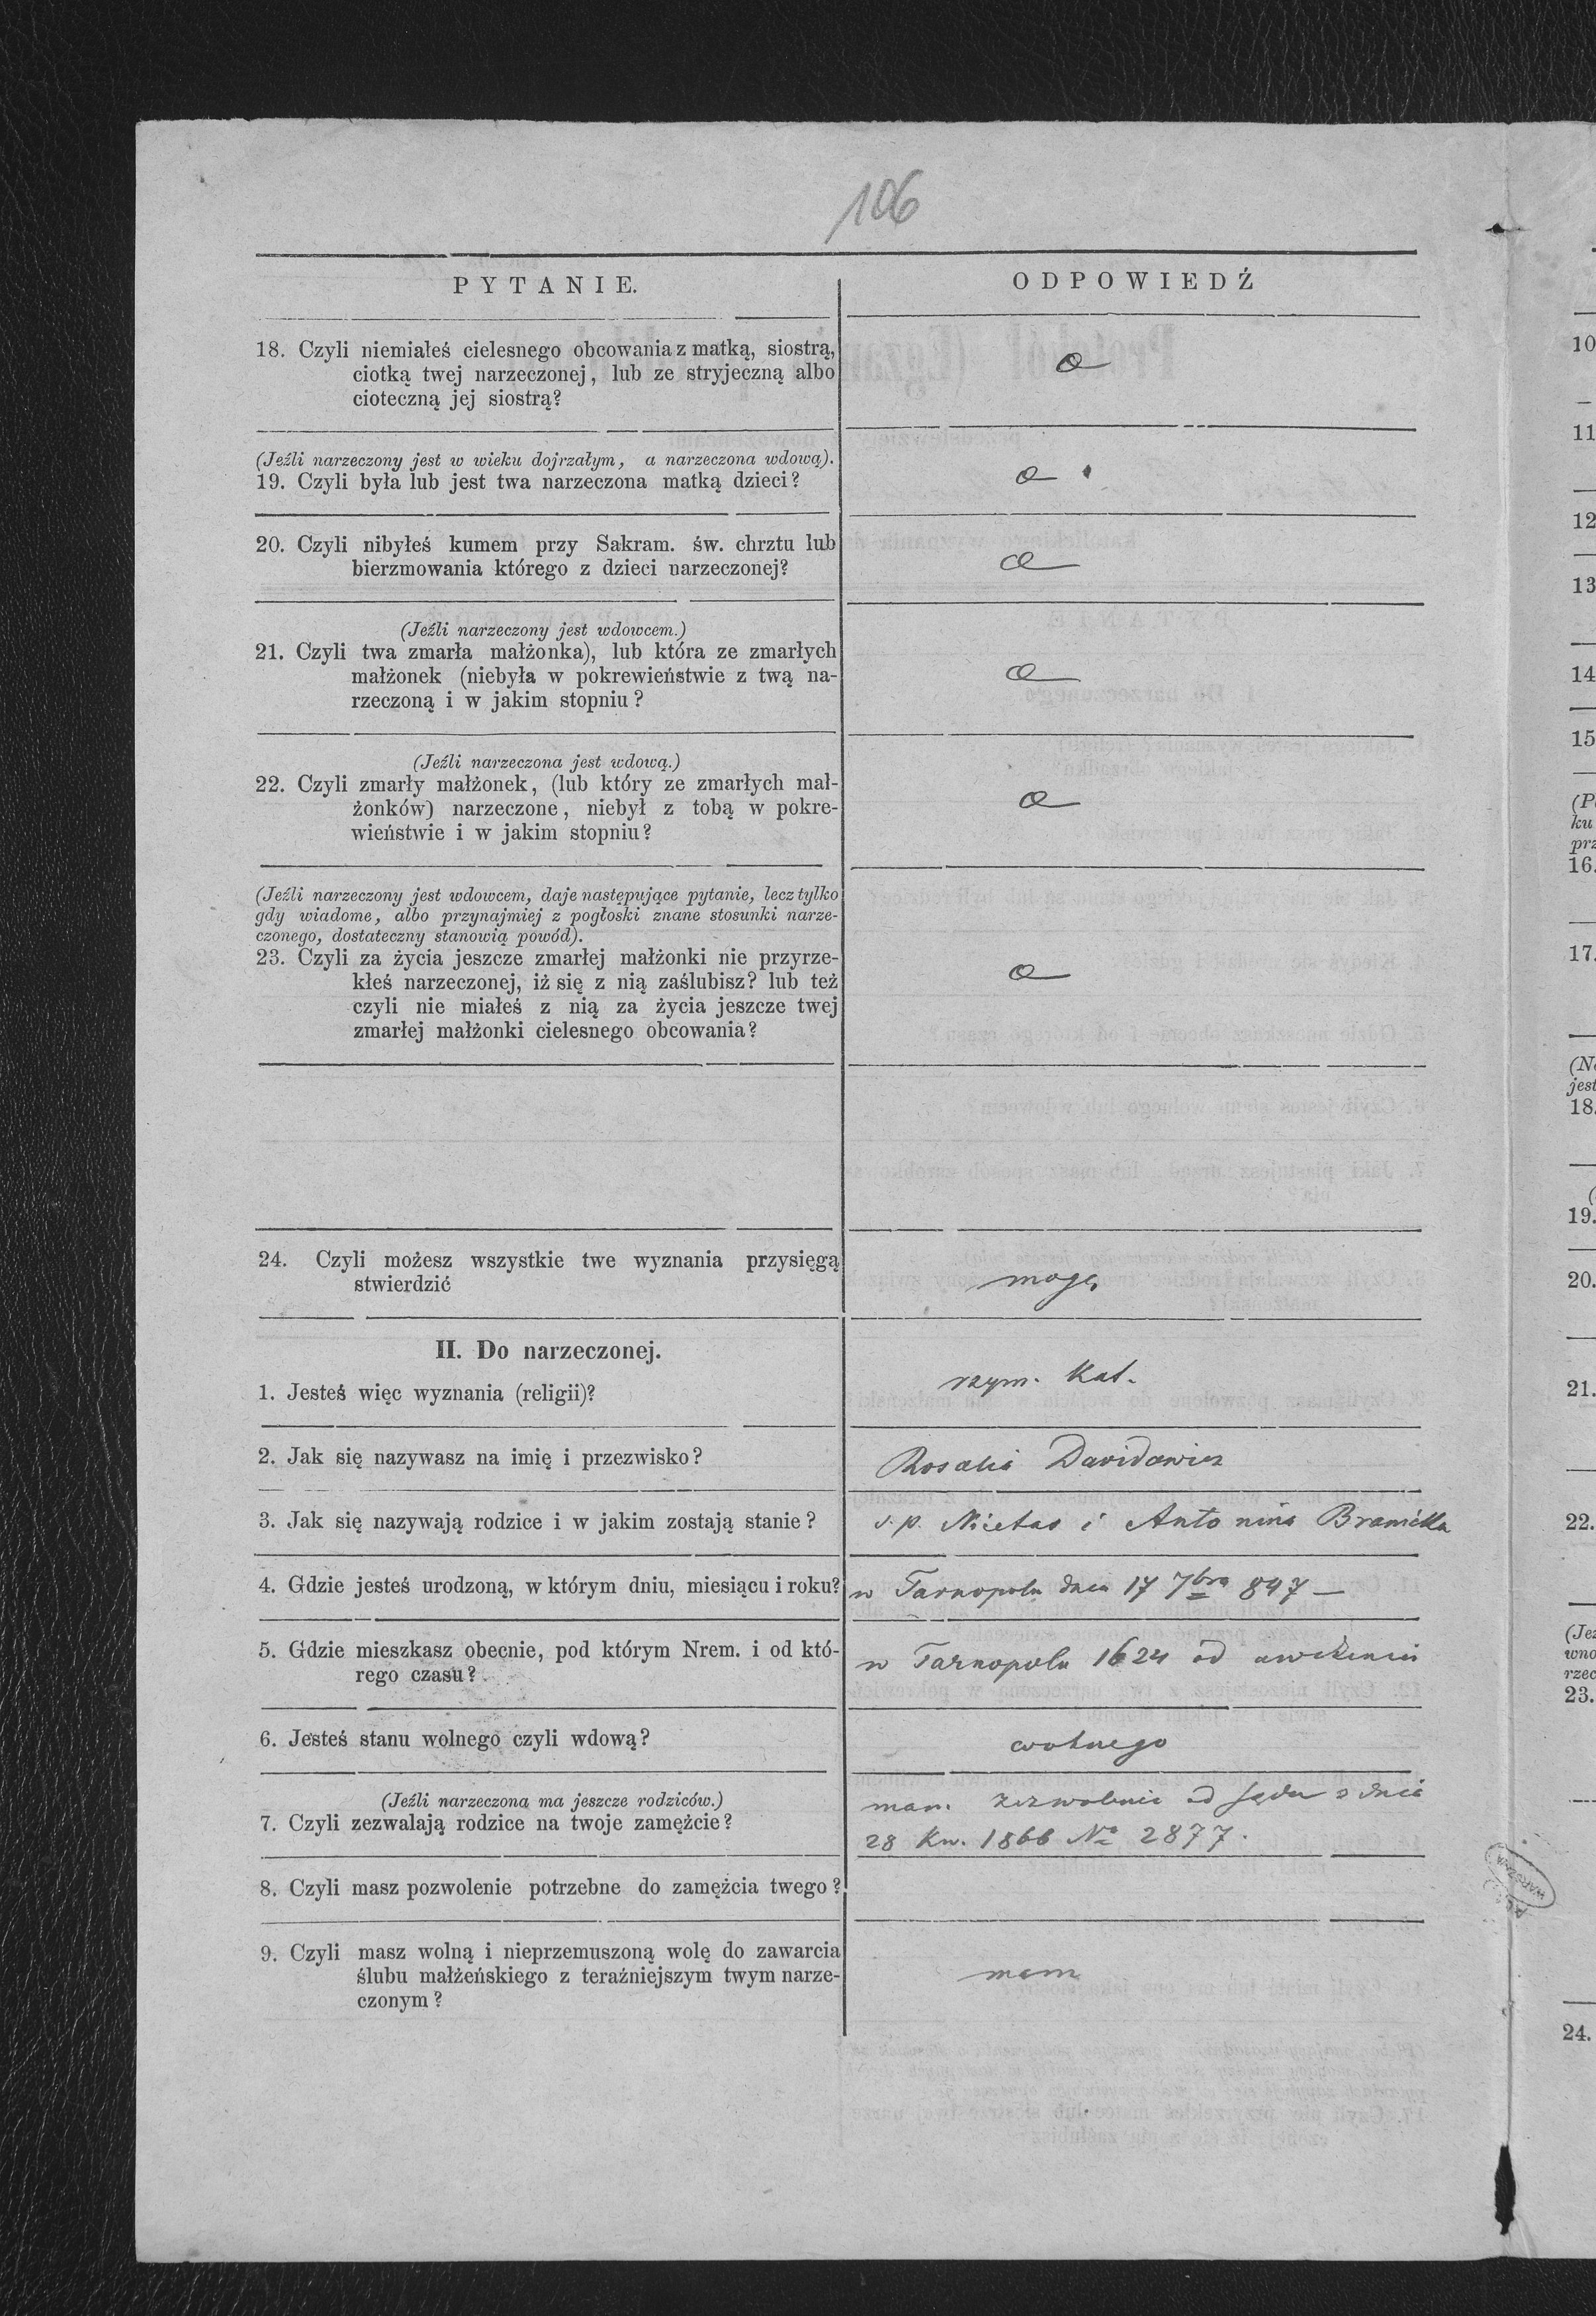 106
PYTANIE.
ODPOWIEDŹ
18. Czyli niemiałeś cielesnego obcowania z matką, siostrą,
ciotką twej narzeczonej, lub ze stryjeczną albo
cioteczną jej siostrą?
(Jeźli narzeczony jest w wieku dojrzałym, a narzeczona wdową).
19. Czyli była lub jest twa narzeczona matką dzieci?
20. Czyli nibyłeś kumem przy Sakram. św. chrztu lub
bierzmowania którego z dzieci narzeczonej?
(Jeźli narzeczony jest wdowcem.)
21. Czyli twa zmarła małżonka), lub która ze zmarłych
małżonek (niebyła w pokrewieństwie z twą na-
rzeczoną i w jakim stopniu?
(Jeźli narzeczona jest wdową.)
22. Czyli zmarły małżonek, (lub który ze zmarłych mał-
żonków) narzeczone, niebył z tobą w pokre-
wieństwie i w jakim stopniu?
(Jeźli narzeczony jest wdowcem, daje następujące pytanie, lecz tylko
gdy wiadome, albo przynajmiej z pogłoski znane stosunki narze-
czonego, dostateczny stanowią powód).
23. Czyli za życia jeszcze zmarłej małżonki nie przyrze-
kłeś narzeczonej, iż się z nią zaślubisz? lub też
czyli nie miałeś z nią za życia jeszcze twej
zmarłej małżonki cielesnego obcowania?
24. Czyli możesz wszystkie twe wyznania przysięgą
stwierdzić
mogę
II. Do narzeczonej.
1. Jesteś więc wyznania (religii)?
rzym. Kat.
2. Jak się nazywasz na imię i przezwisko?
Rosalia Davidowicz
3. Jak się nazywają rodzice i w jakim zostają stanie?
ś. p. Nicetas i Antonina Branicka
4. Gdzie jesteś urodzoną, w którym dniu, miesiącu i roku?
w Tarnopolu dnia 17 7bra 847 —
5. Gdzie mieszkasz obecnie, pod którym Nrem. i od któ-
rego czasu?
w Tarnopolu 1624 od
6. Jesteś stanu wolnego czyli wdową?
wolnego
(Jeźli narzeczona ma jeszcze rodziców.)
7. Czyli zezwalają rodzice na twoje zamężcie?
mam zezwolenie od Sądu z dnia
28 Kw. 1866 No 2877.
8. Czyli masz pozwolenie potrzebne do zamężcia twego?
9. Czyli masz wolną i nieprzemuszoną wolę do zawarcia
ślubu małżeńskiego z teraźniejszym twym narze-
czonym?
mam
10
11
12
13
14
15
(P
ku
prz
16.
17.
(N
jest
18.
(
19.
20.
21.
22.
(Jeź
wno
rzec
23.
24.